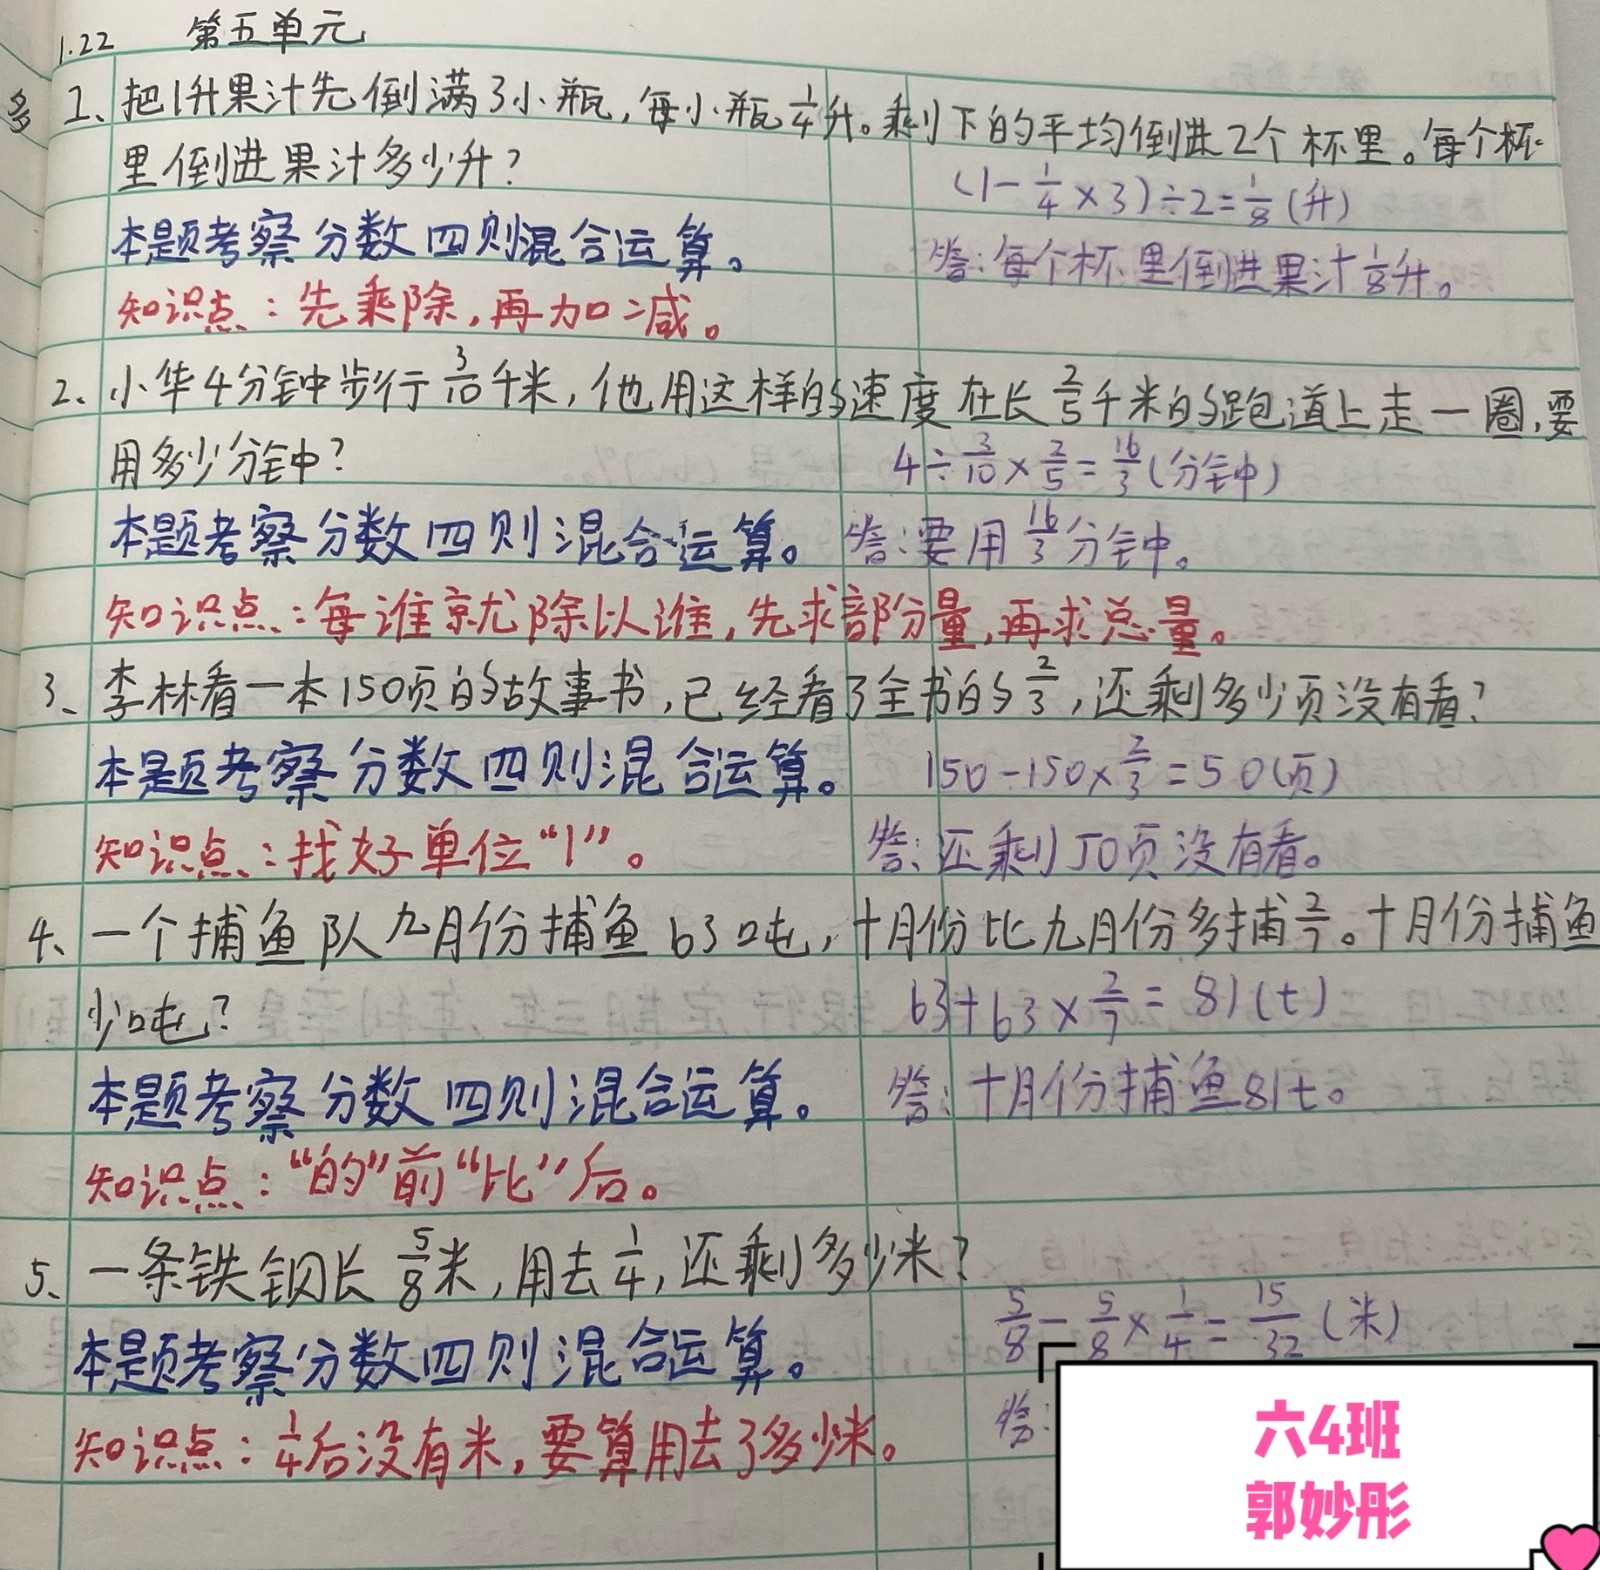 1.22 第五单元
多
1、把1升果汁先倒满3小瓶,每小瓶1/4升。剩下的平均倒进2个杯里。每个杯
里倒进果汁多少升?
(1-1/4×3)÷2=1/8(升)
本题考察分数四则混合运算。
答:每个杯里倒进果汁1/8升。
知识点:先乘除,再加减。
2、小华4分钟步行3/10千米,他用这样的速度在长2/5千米的跑道上走一圈,要
用多少分钟?
4÷3/10×2/5=16/3(分钟)
本题考察分数四则混合运算。
答:要用16/3分钟。
知识点:每谁就除以谁,先求部分量,再求总量。
3、李林看一本150页的故事书,已经看了全书的2/3,还剩多少页没有看?
本题考察分数四则混合运算。
150-150×2/3=50(页)
知识点:找好单位“1”。
答:还剩50页没有看。
4、一个捕鱼队九月份捕鱼63吨,十月份比九月份多捕2/7。十月份捕鱼
少吨?
63+63×2/7=81(t)
本题考察分数四则混合运算。
答:十月份捕鱼81t。
知识点:“的”前“比”后。
5、一条铁钢长5/8米,用去1/4,还剩多少米?
5/8-5/8×1/4=15/32(米)
本题考察分数四则混合运算。
答:
知识点:1/4后没有米,要算用去了多少米。
六4班
郭妙彤